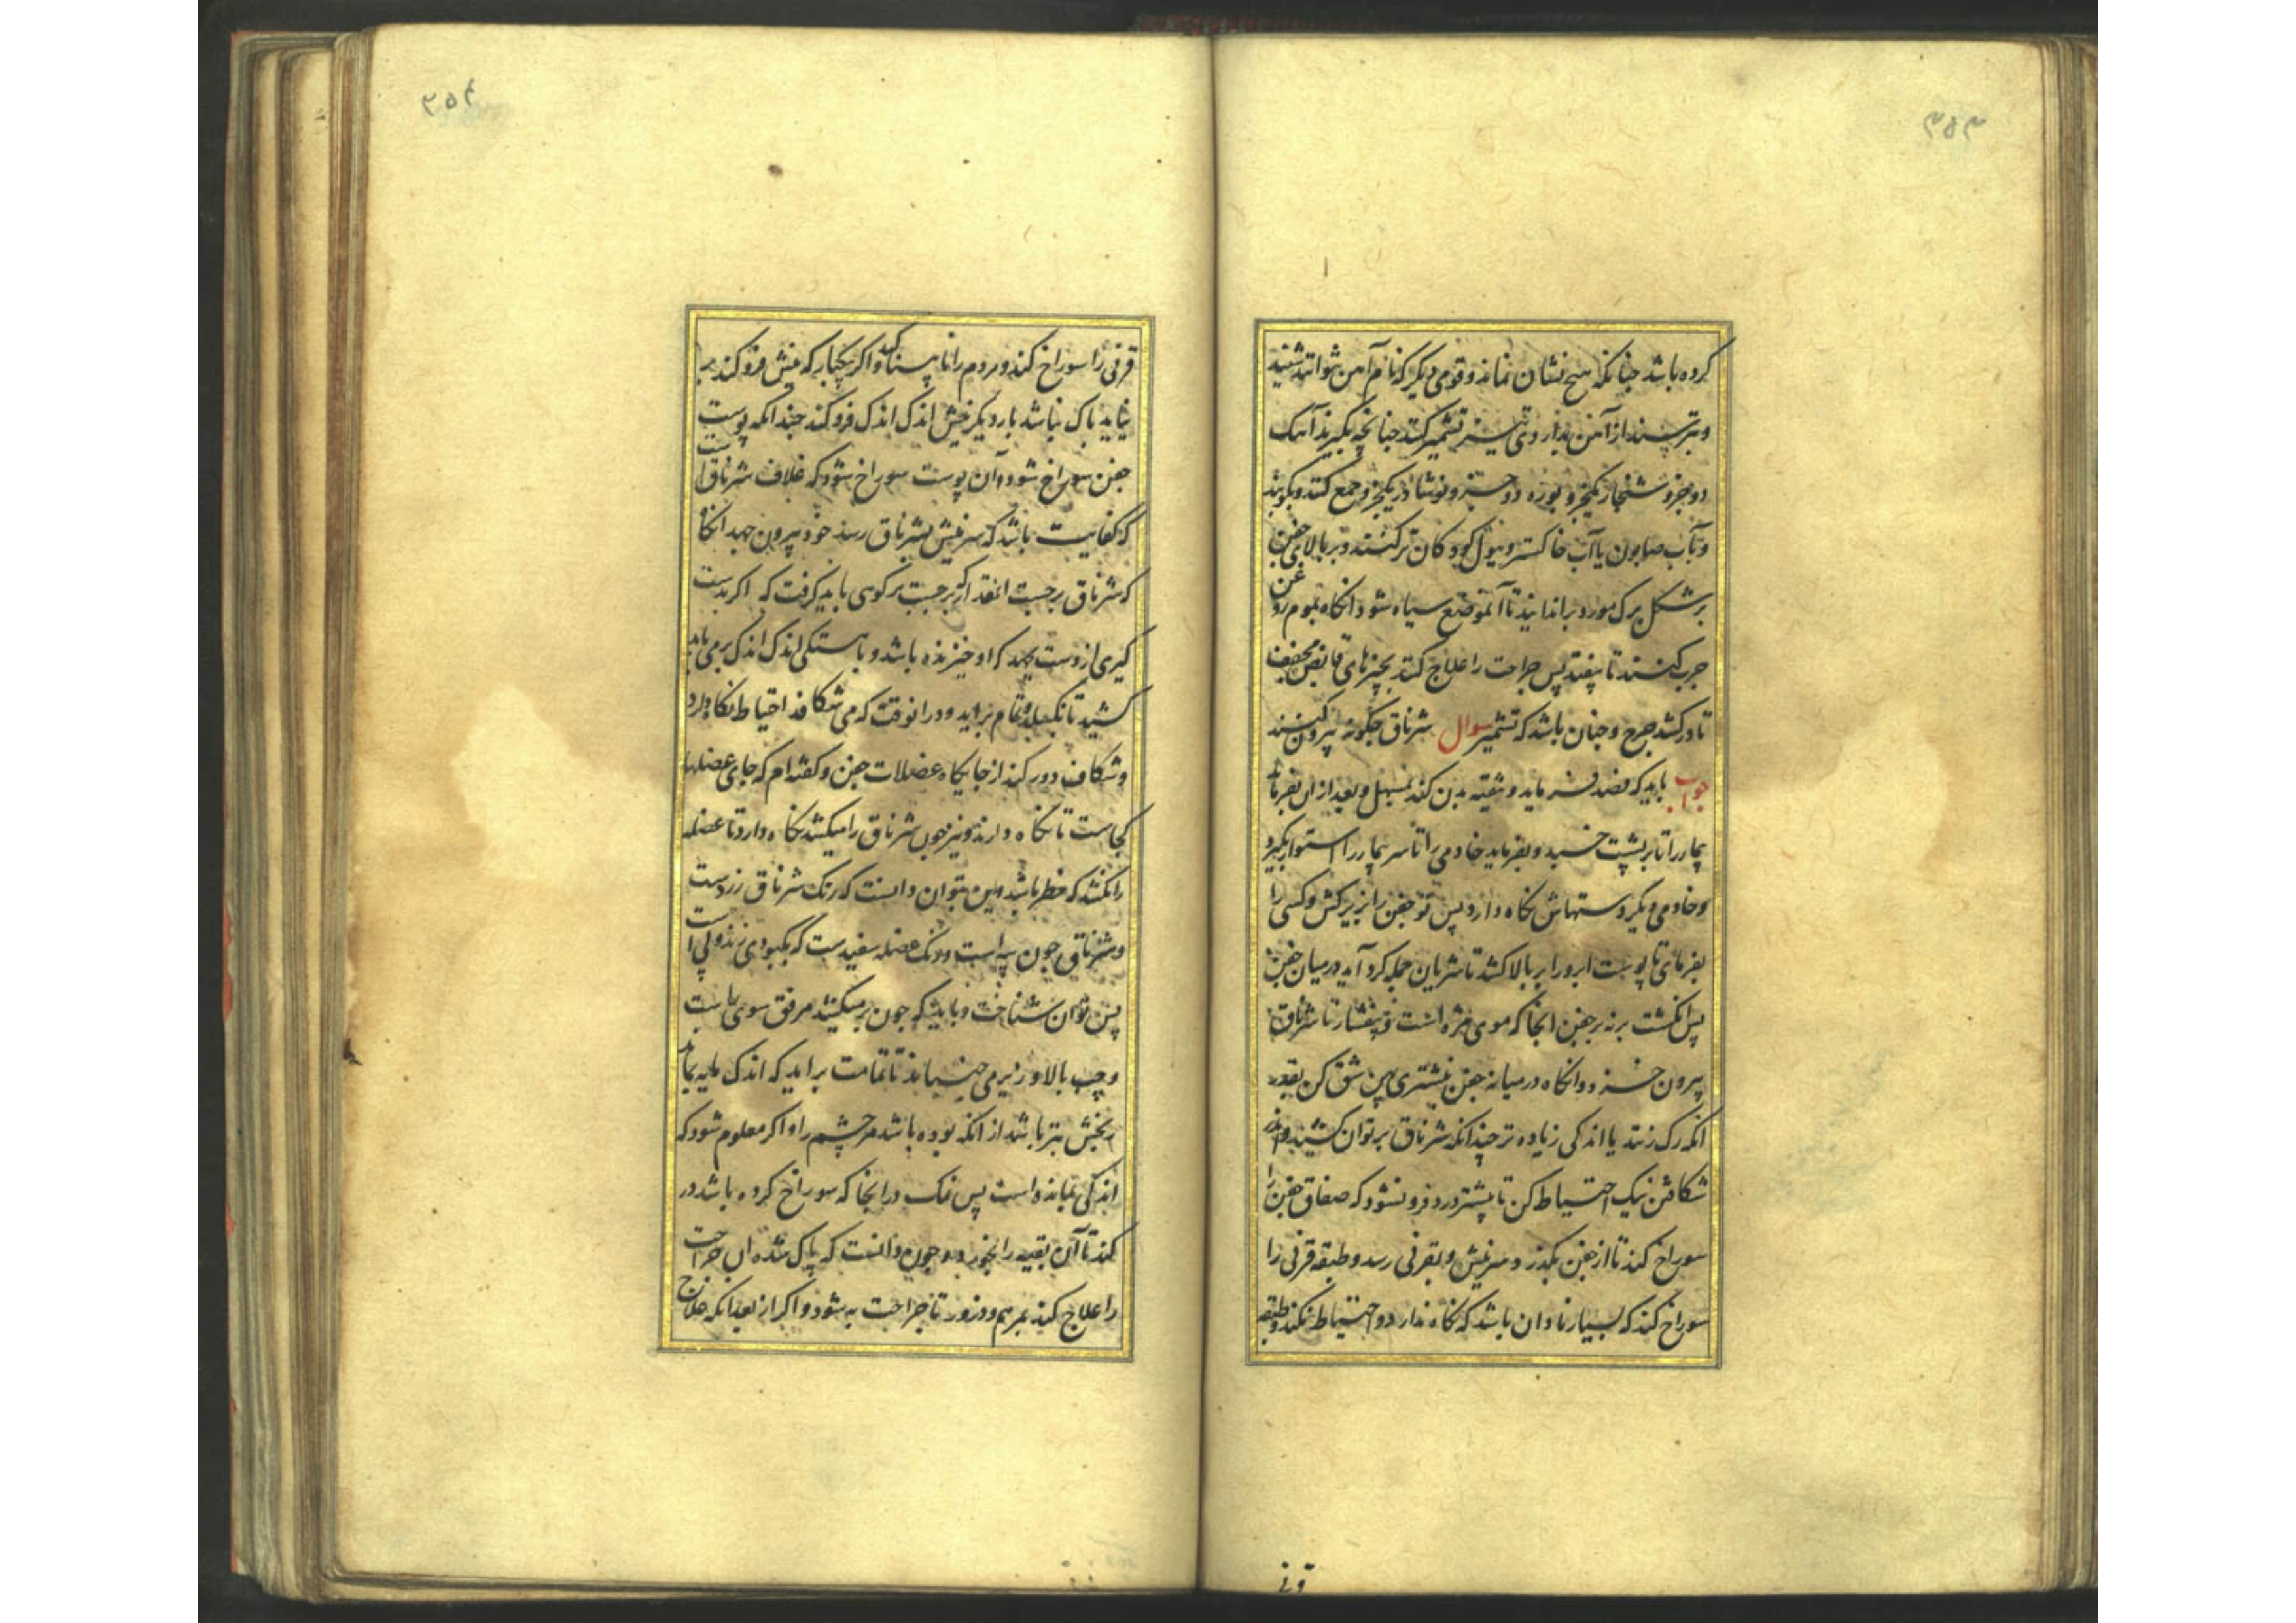 ۳۵۳
کرده باشد چنانکه هیچ نشان نماند و قومی دیگر که نام آهن نتوانند شنید
و بترسند از آهن بداروی تیز تشمیر کنند چنانچه بگیرند آهک
دو جزو شنجار یکجزو بوره دو جزو نوشادر یکجزو جمع کنند و بکوبند
و بآب صابون یا آب خاکستر و ببول کودکان تر کنند و بر بالای جفن
بر شکل برک مورد براندایند تا آنموضع سیاه شود آنکاه بموم روغن
چرب کنند تا بیفتد پس جراحت را علاج کنند بچیزهای قابض مجفف
تا درکشد جرح و چنان باشد که تشمیر سوال شرناق چکونه بیرون کنند
جواب باید که فصد فرماید و تنقیه بدن کند بمسهل و بعد از آن بفرماید
بیمار را تا بر پشت خسبد و بفرماید خادمی را تا سر بیمار را استوار بگیرد
و خادمی دیگر دستهاش نکاه دارد پس تو جفن را بزیر کش و کسی را
بفرمای تا پوست ابرو را بر بالا کشد تا شریان جمله کرد آید در میان جفن
پس انکشت برنه بر جفن آنجا که موی مژه است و بیفشار تا شرناق
بیرون خیزد و آنکاه در میانه جفن بنیشتری پهن شق کن بقدر
آنکه رک زنند یا اندکی زیاده تر چندانکه شرناق بر توان کشید و اندر
شکافتن نیک احتیاط کن تا نیشتر دور فرو نشود که صفاق جفن را
سوراخ کند تا از جفن بکذرد و سر نیش و بقرنی رسد و طبقه قرنی را
سوراخ کند که بسیار نادان باشد که نکاه ندارد و احتیاط نکند و طبقه
قرنی
۳۵۴
قرنی را سوراخ کند و مردم را نابینا کند و اکر بیکبار که نیش فرو کند بر
نیاید باک نباشد بار دیگر نیش اندک اندک فرو کند چندانکه پوست
جفن سوراخ شود و آن پوست سوراخ شود که غلاف شرناق است
که کفایت باشد که سر نیش بشرناق رسد خود بیرون جهد آنکاه
که شرناق برجست آنقدر که برجست بر کوی باید کرفت که اکر بدست
کیری از دست بجهد که او خیزنده باشد و باهستکی اندک اندک برمی باید
کشید تا نکسلد و تمام برآید و در آنوقت که می شکافد احتیاط نکاه دارد
و شکاف دور کند از جایکاه عضلات جفن و کفته ام که جای عضلها
کجاست تا نکاه دارند و نیز چون شرناق را میکشد نکاه دارد تا عضله
را نکشد که خطر باشد و این بتوان دانست که رنک شرناق زردست
و شرناق چون پیه است و رنک عضله سفیدست که بکبودی زند و لی است
پس توان شناخت و باید که چون برمیکشد مرفق سوی راست
و چپ بالا و زیر می جنباند تا تمامت برآید که اندک مایه بماند
رنجش بتر باشد از آنکه بوده باشد مر چشم را و اکر معلوم شود که
اندکی بمانده است پس نمک در آنجا که سوراخ کرده باشد در
کند تا آن بقیه را بخورد و چون دانست که پاک شده آن جراحت
را علاج کند بمرهم و ذرور تا جراحت به شود و اکر از بعد آنکه علاج